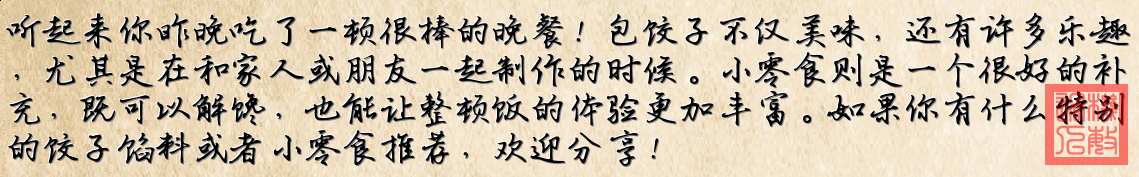 听起来你昨晚吃了一顿很棒的晚餐！包饺子不仅美味，还有许多乐趣
，尤其是在和家人或朋友一起制作的时候。小零食则是一个很好的补
充，既可以解馋，也能让整顿饭的体验更加丰富。如果你有什么特别
的饺子馅料或者小零食推荐，欢迎分享！